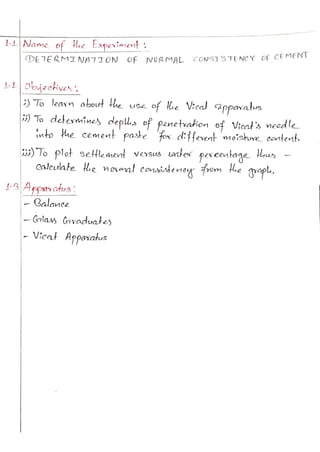 1.1 Name of the Experiment :
DETERMINATION OF NORMAL CONSISTENCY OF CEMENT
1.2 Objectives :
i) To learn about the use of the Vicat Apparatus
ii) To determines depths of penetration of Vicat's needle
into the cement paste for different moisture content.
iii) To plot settlement versus water percentage thus -
calculate the normal consistency from the graph.
1.3 Apparatus :
- Balance
- Glass Graduates
- Vicat Apparatus